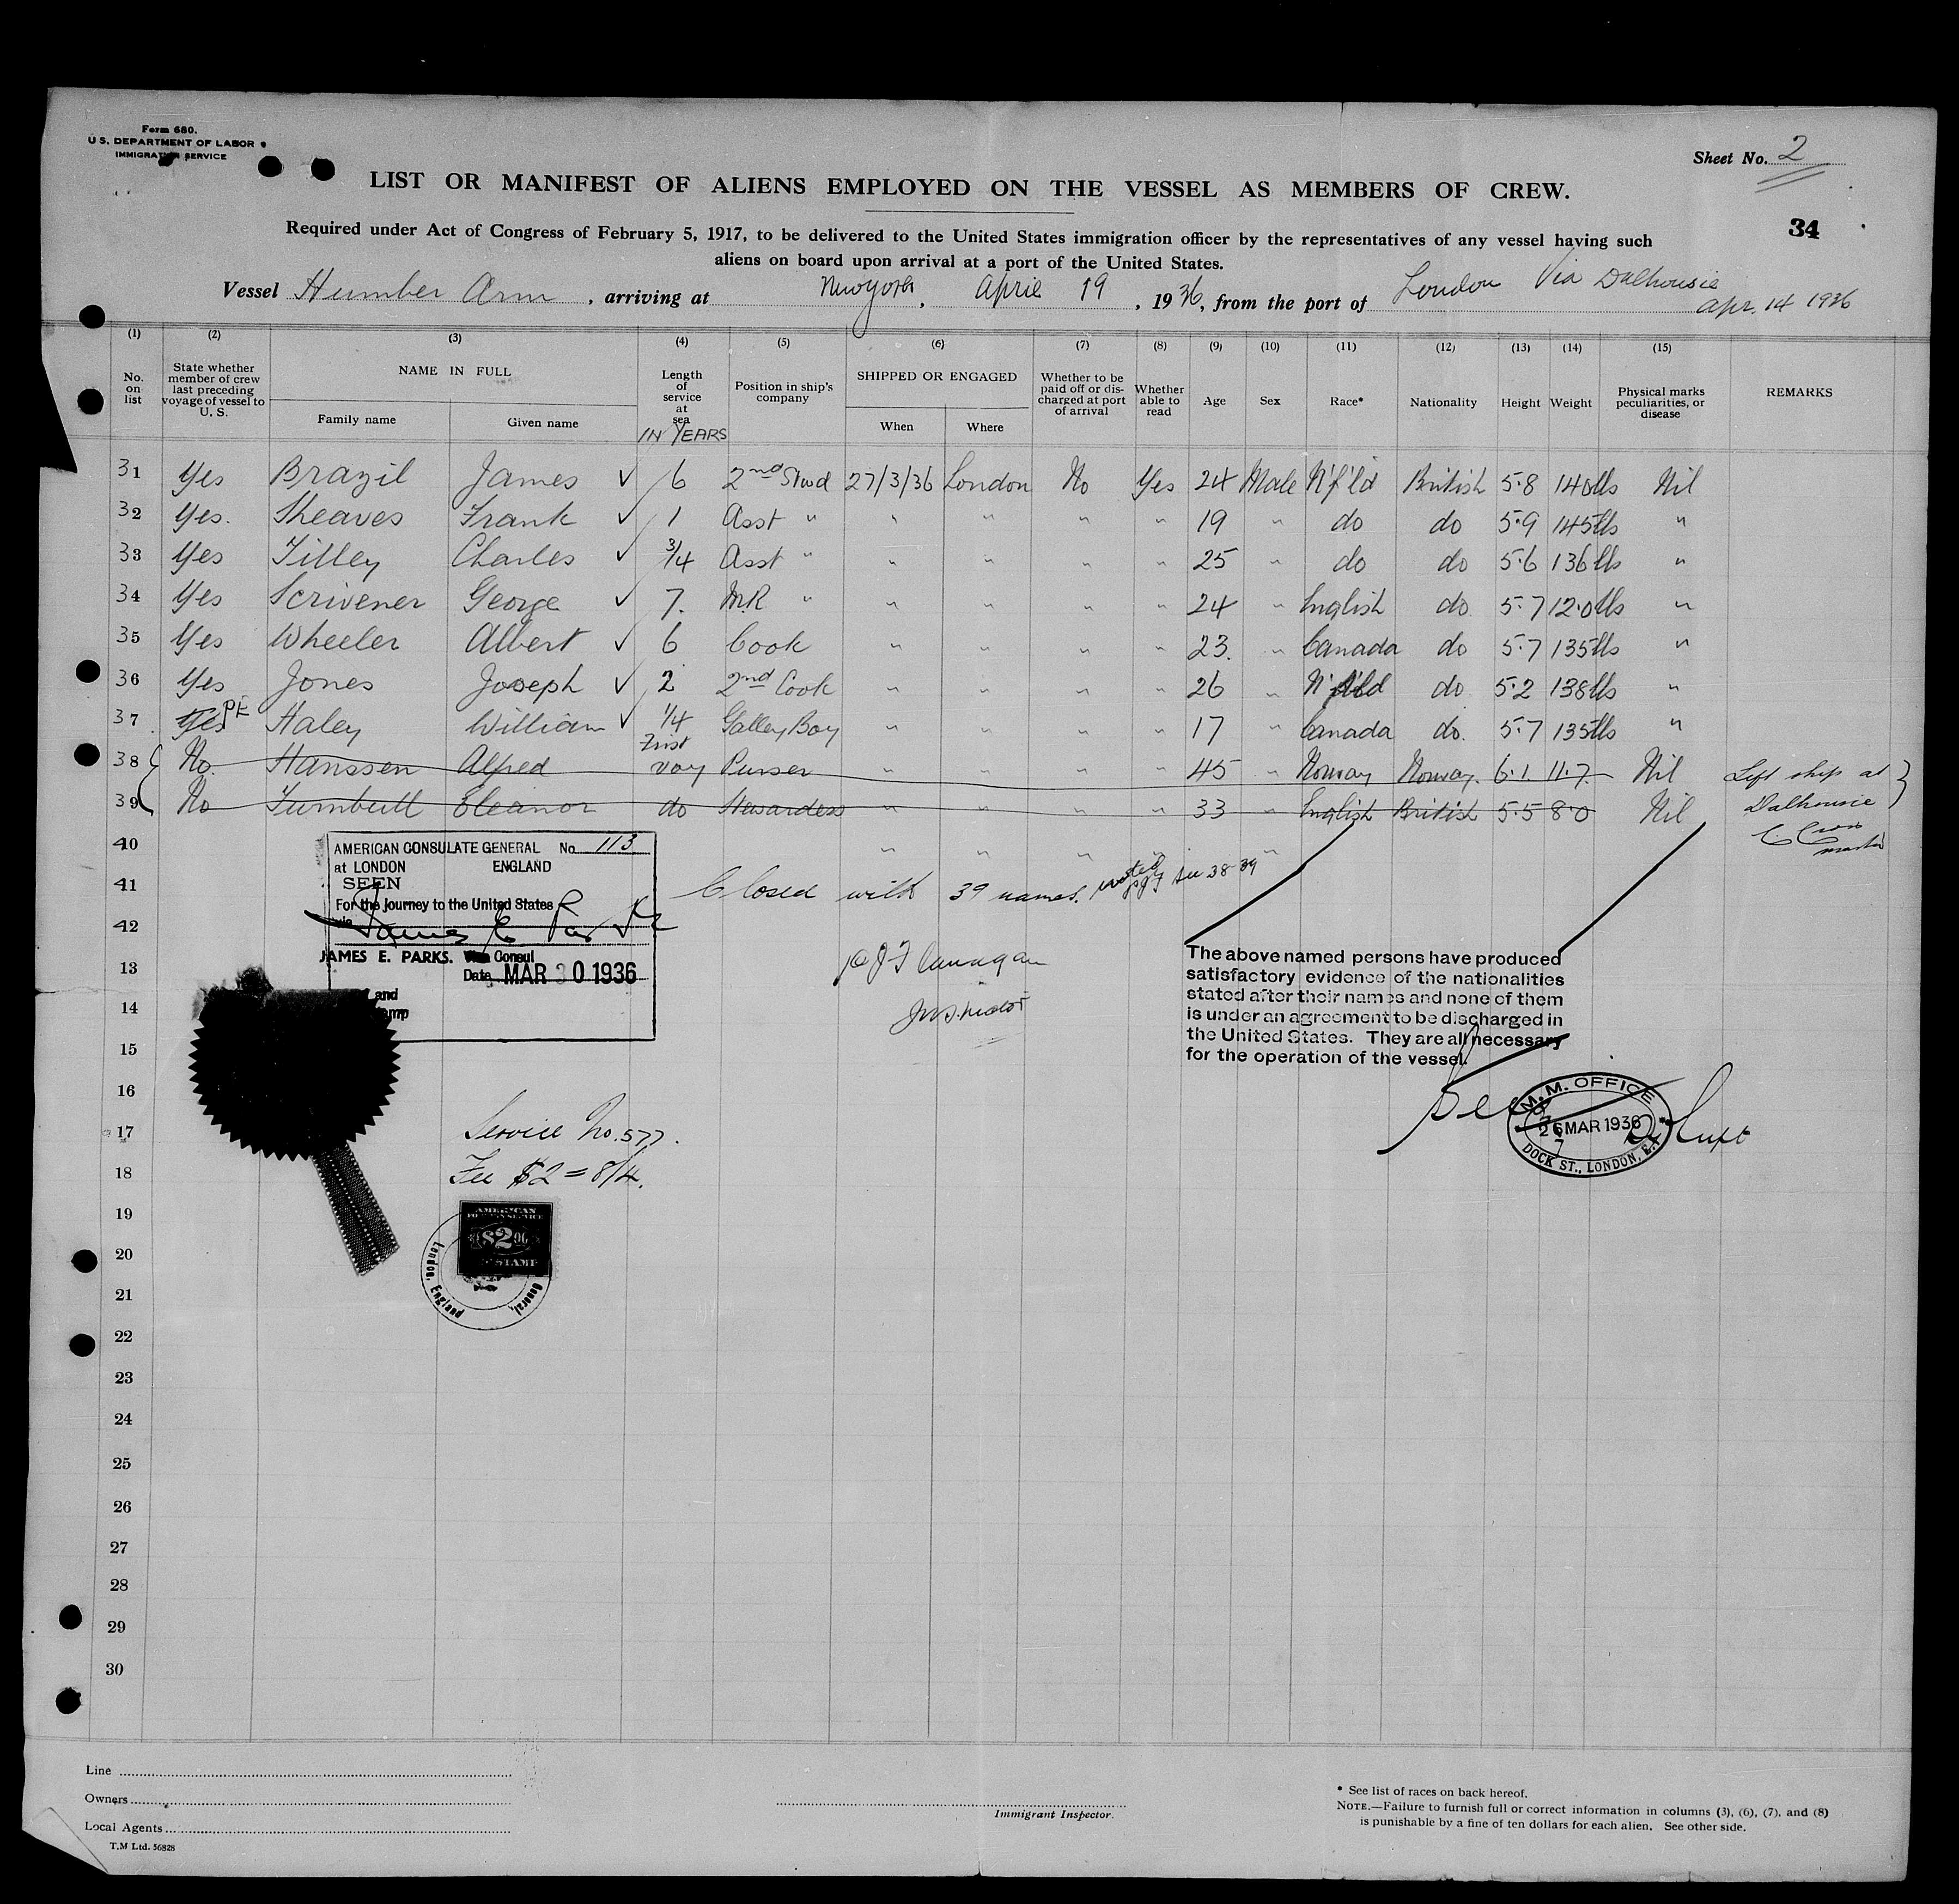 Form 680.
U.S. DEPARTMENT OF LABOR
IMMIGRATION SERVICE
Sheet No. 2
LIST OR MANIFEST OF ALIENS EMPLOYED ON THE VESSEL AS MEMBERS OF CREW.
34
Required under Act of Congress of February 5, 1917, to be delivered to the United States immigration officer by the representatives of any vessel having such
aliens on board upon arrival at a port of the United States.
Vessel Humber Arm, arriving at New York, April 19, 1936, from the port of London Via Dalhousie
Apr. 14 1936
(1) (2) (3) (4) (5) (6) (7) (8) (9) (10) (11) (12) (13) (14) (15)
No. on list
State whether member of crew last preceding voyage of vessel to U. S.
NAME IN FULL
Family name
Given name
Length of service at sea
IN YEARS
Position in ship's company
SHIPPED OR ENGAGED
When
Where
Whether to be paid off or dis-charged at port of arrival
Whether able to read
Age
Sex
Race*
Nationality
Height
Weight
Physical marks peculiarities, or disease
REMARKS
31 Yes Brazil James ✓ 6 2nd Stwd 27/3/36 London No Yes 24 Male N'f'ld British 5·8 140lbs Nil
32 Yes. Sheaves Frank ✓ 1 Asst " " " " " 19 " do do 5·9 145lbs "
33 Yes Tilley Charles ✓ 3/4 Asst " " " " " 25 " do do 5·6 136lbs "
34 Yes Scrivener George ✓ 7. M.R " " " " " 24 " English do 5·7 120lbs "
35 Yes Wheeler Albert ✓ 6 Cook " " " " 23. " Canada do 5·7 135lbs "
36 Yes Jones Joseph ✓ 2 2nd Cook " " " " 26 " N'f'ld do 5·2 138lbs "
37 Yes PE Haley William ✓ 1/4 Galley Boy " " " " 17 " Canada do. 5·7 135lbs "
38 No. Hanssen Alfred First voy Purser " " " " 45 " Norway Norway. 6·1. 11·7. Nil Left ship at
39 No Turnbull Eleanor do Stewardess " " " " 33 " English British 5·5 8·0 Nil Dalhousie
master
40 " " " " "
41 Closed with 39 names. see 38-39
AMERICAN CONSULATE GENERAL No. 113
at LONDON ENGLAND
SEEN
For the journey to the United States
via
James E. Parks
JAMES E. PARKS. Vice Consul
Date MAR 30 1936
and
The above named persons have produced
satisfactory evidence of the nationalities
stated after their names and none of them
is under an agreement to be discharged in
the United States. They are all necessary
for the operation of the vessel.
M.M. OFFICE
26 MAR 1936
7
DOCK ST., LONDON, E.1
12
13
14
15
16
17
18
Service No. 577.
Fee $2 = 8/4.
AMERICAN
FOREIGN SERVICE
$2.00
STAMP
London, England
General,
19
20
21
22
23
24
25
26
27
28
29
30
Line
Owners
Local Agents
T.M Ltd. 56828
Immigrant Inspector.
* See list of races on back hereof.
NOTE.—Failure to furnish full or correct information in columns (3), (6), (7), and (8)
is punishable by a fine of ten dollars for each alien. See other side.